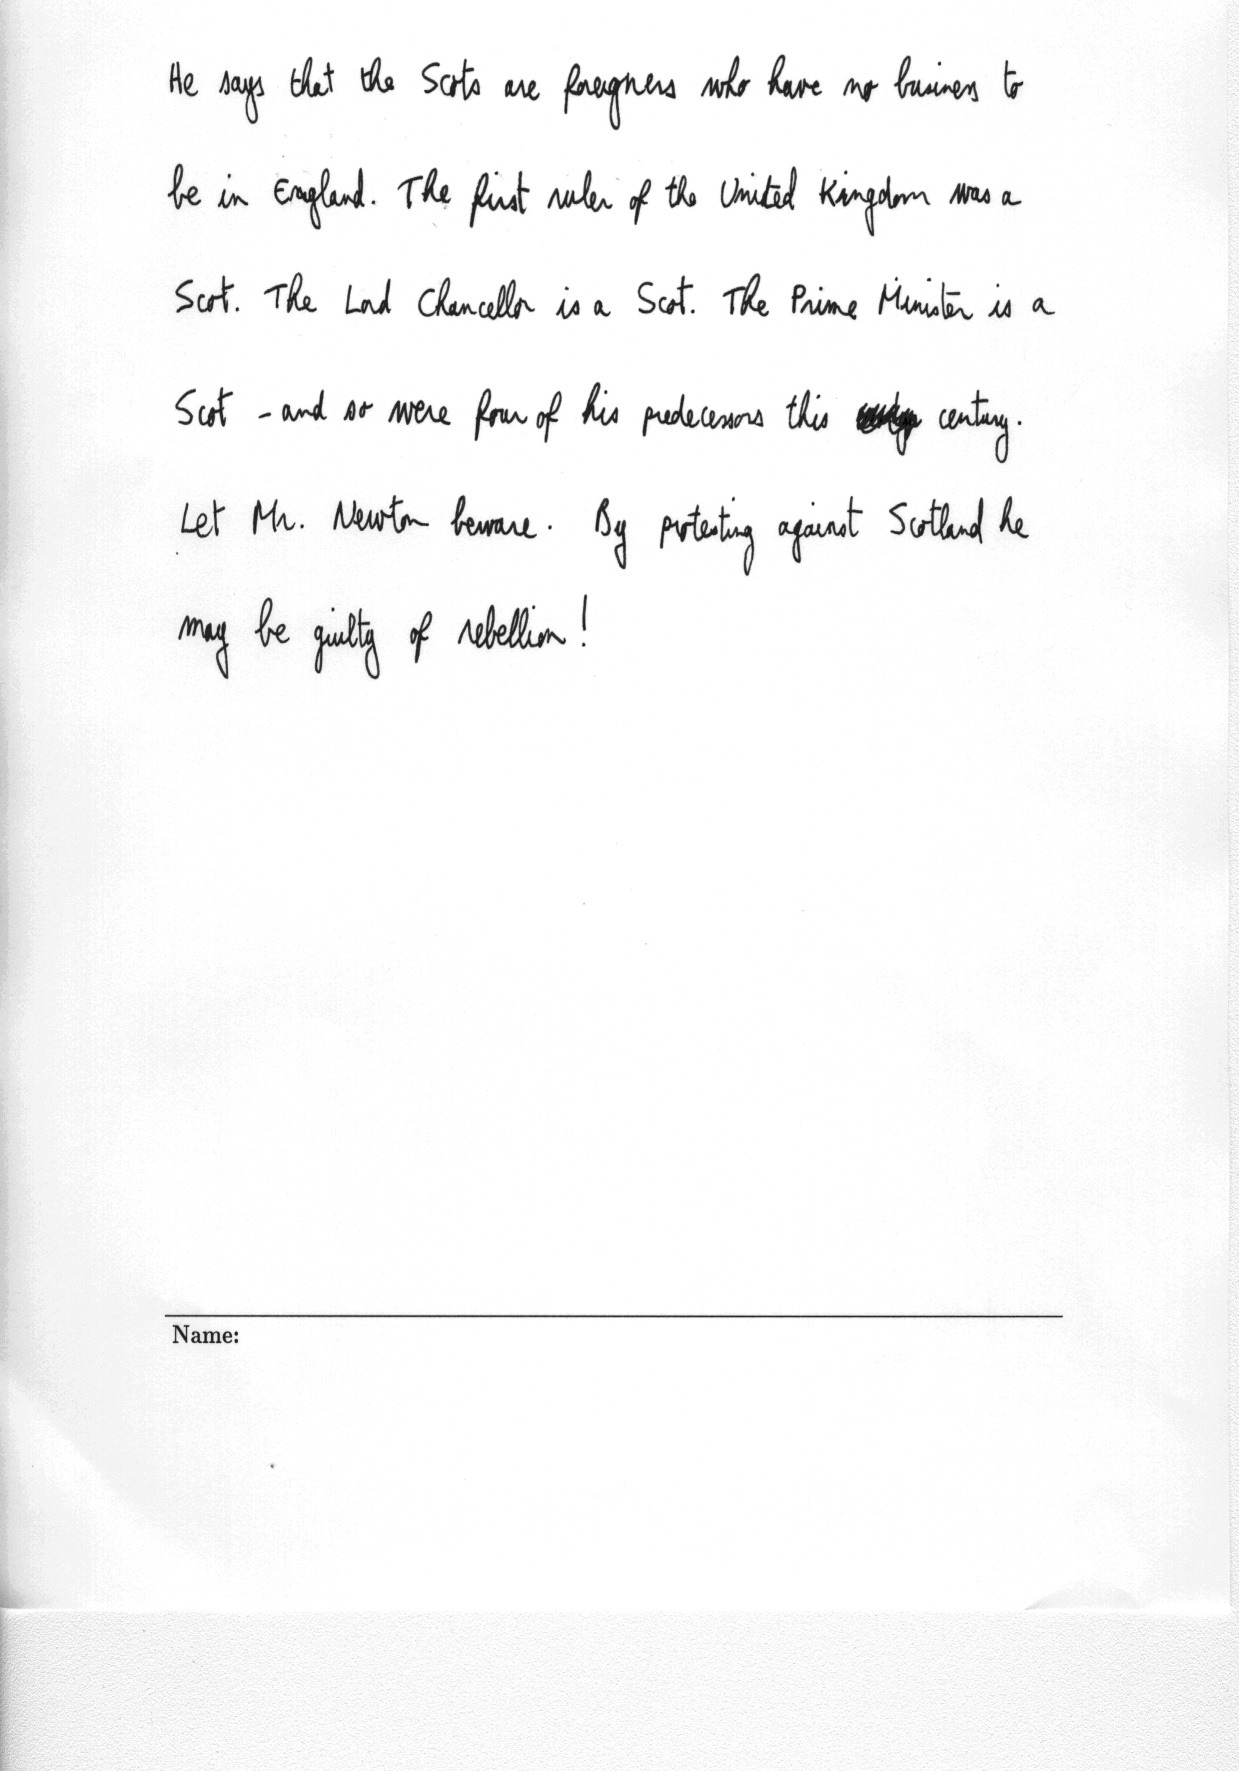 He says that the Scots are foreigners who have no business to
be in England. The first ruler of the United Kingdom was a
Scot. The Lord Chancellor is a Scot. The Prime Minister is a
Scot - and so were four of his predecessors this century.
Let Mr. Newton beware. By protesting against Scotland he
may be guilty of rebellion!
Name: